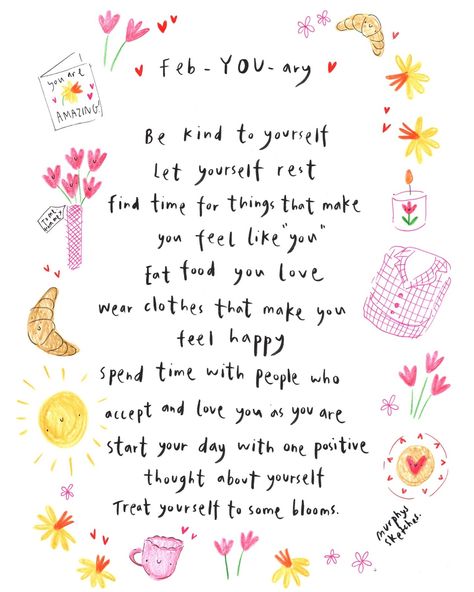 feb-YOU-ary
you are
AMAZING!
Be kind to yourself
Let yourself rest
find time for things that make
you feel like "you"
Eat food you love
wear clothes that make you
feel happy
spend time with people who
accept and love you as you are
start your day with one positive
thought about yourself
Treat yourself to some blooms.
murphys
sketches.